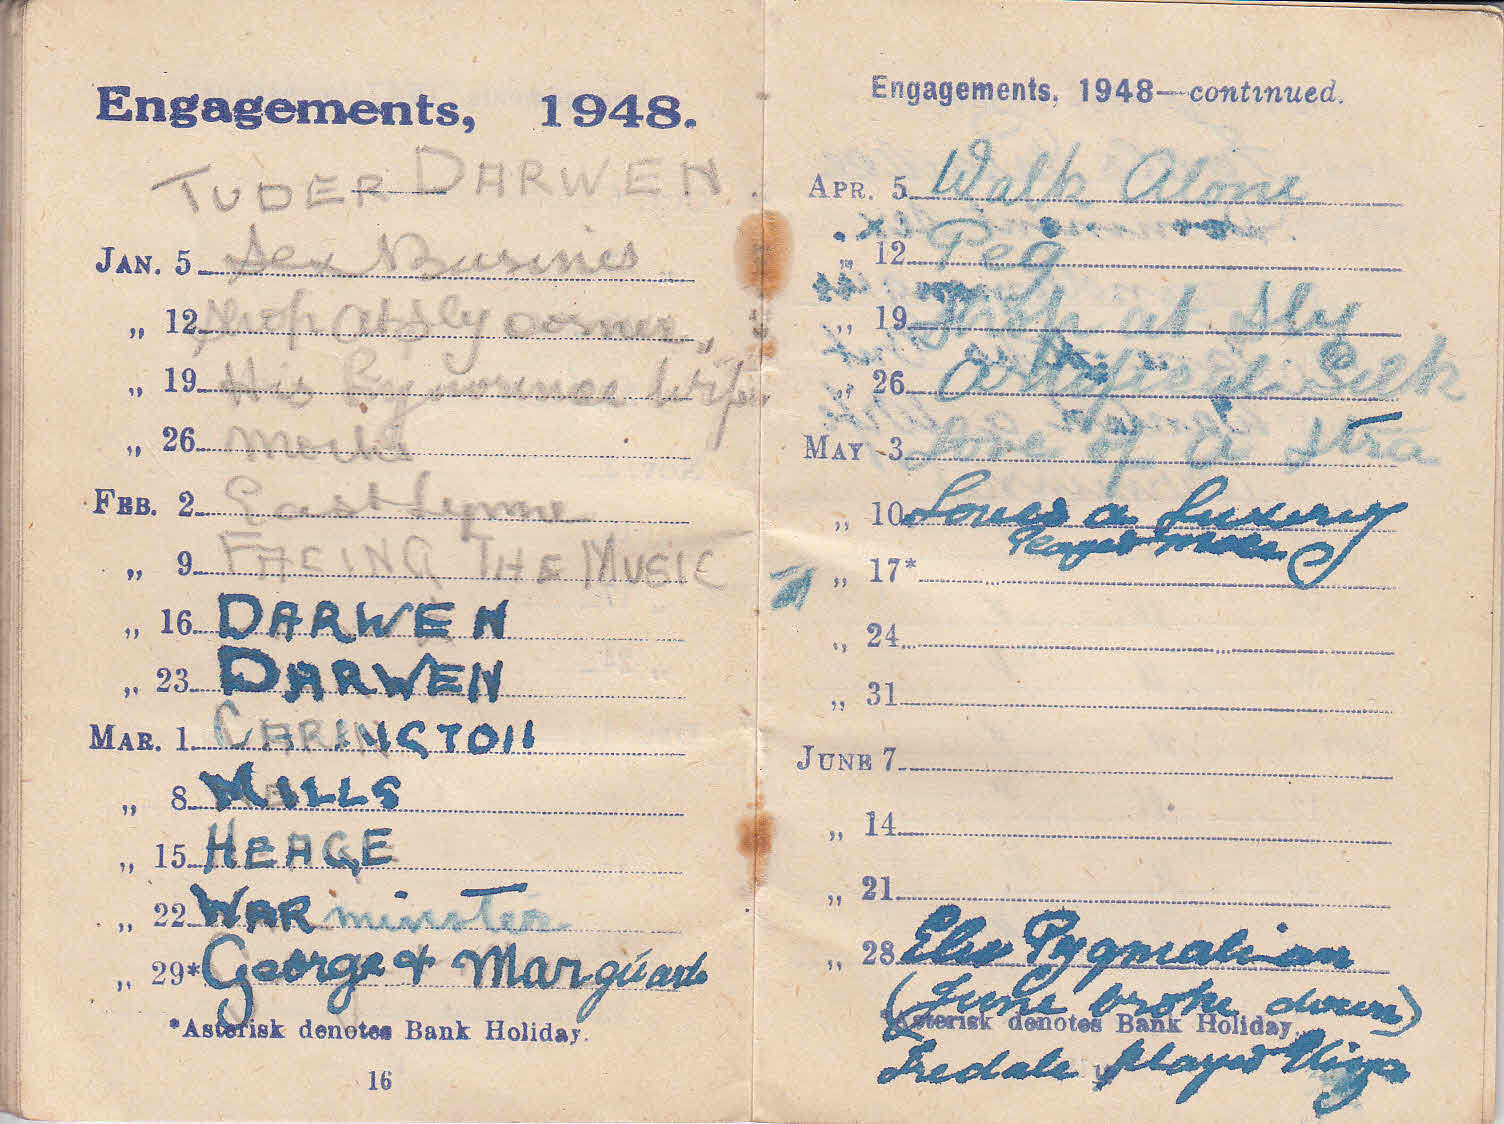 Engagements, 1948.
TUDER DARWEN
JAN. 5 Sex Busines
„ 12 Shop at Sly corner
„ 19 His Wife
„ 26
FEB. 2 East Lynne
„ 9 FACING THE MUSIC
„ 16 DARWEN
„ 23 DARWEN
MAR. 1 CARINGTON
„ 8 MILLS
„ 15 HEAGE
„ 22 WAR minster
„ 29* George & Marguard
*Asterisk denotes Bank Holiday.
16
Engagements, 1948—continued.
APR. 5 Walk Alone
„ 12 Peg
„ 19 Shop at Sly
„ 26 Silk
MAY 3 Love of a Stra
„ 10 Loves a Luxury
Played
„ 17*
„ 24
„ 31
JUNE 7
„ 14
„ 21
„ 28 Pygmalian
(June broke down)
*Asterisk denotes Bank Holiday.
Iredale played